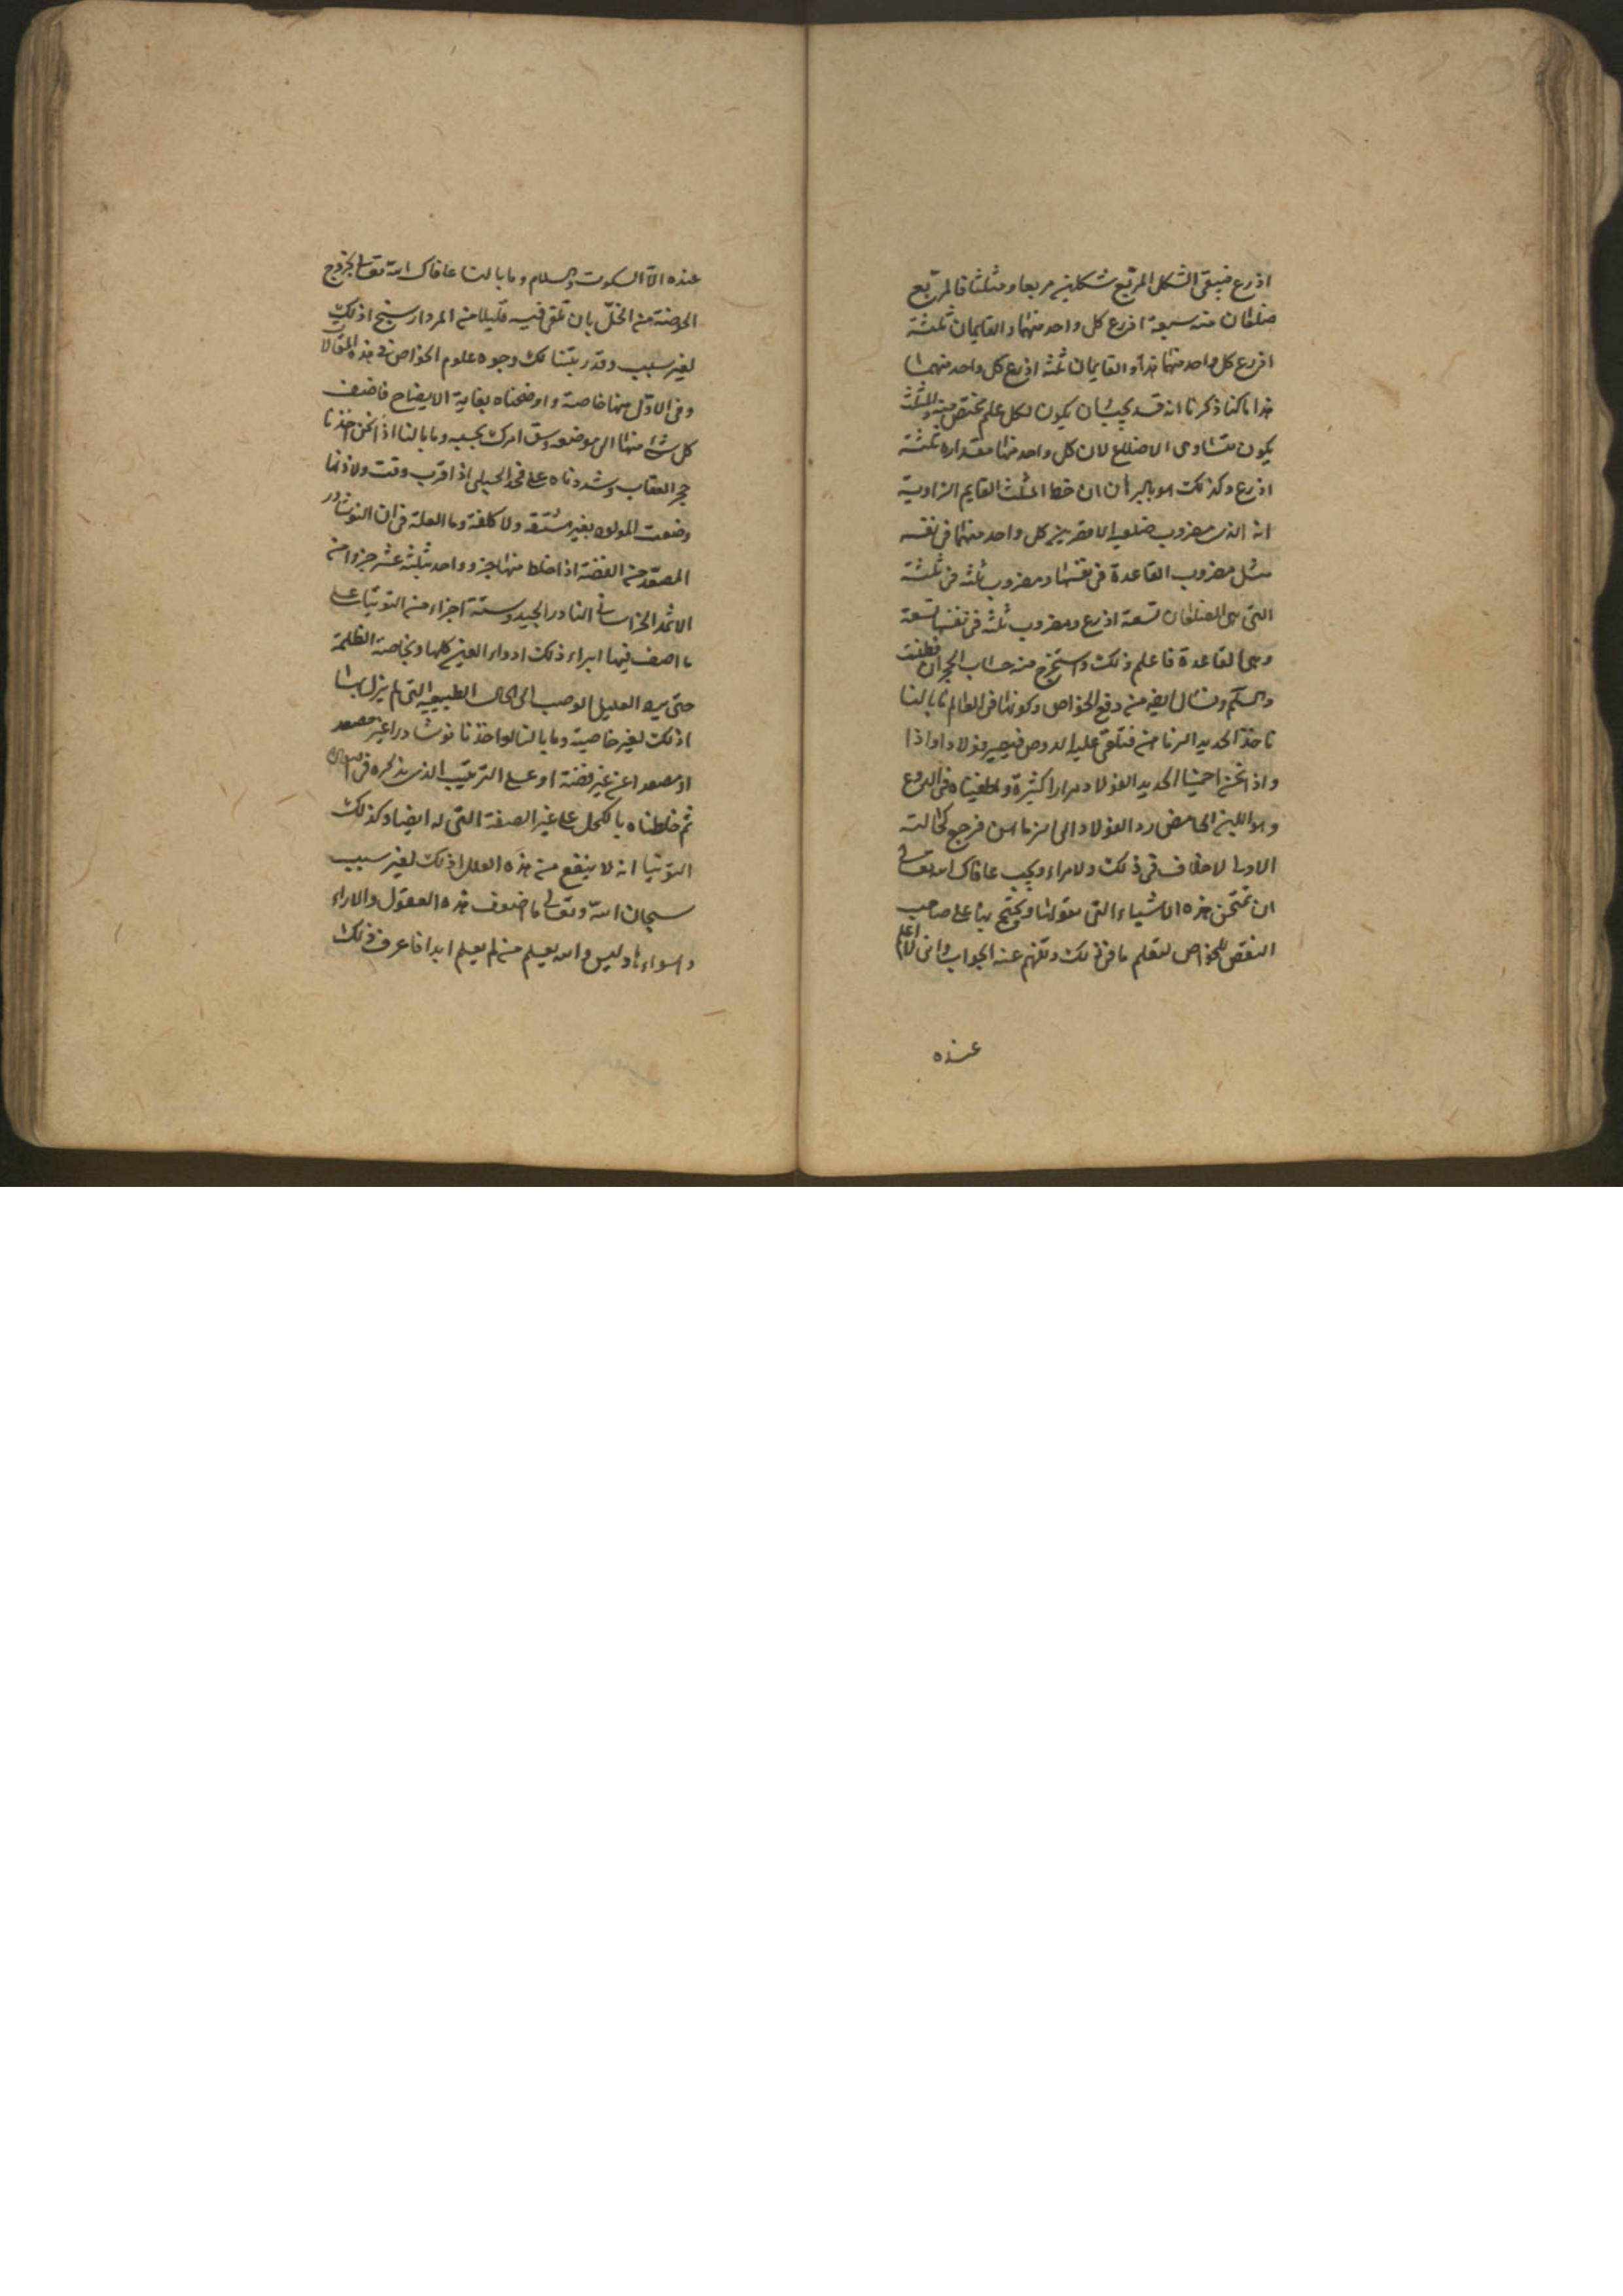 اذرع فيبقى الشكل المربع شكلين مربعا ومثلثا فالمربع
ضلعان منه سبعة اذرع كل واحد منهما والقايمان ثلثة
اذرع كل واحد منهما والقايمان ثلثه اذرع كل واحد منهما
ذكرنا انه قد يجب ان يكون لكل علم يختص والمثلث
يكون متساوى الاضلاع لان كل واحد منها مقداره ثلثة
اذرع وكذلك ان خط المثلث القايم الزاوية
انه الذى مضروب كل واحد منهما فى نفسه
مثل مضروب القاعدة فى نفسها ومضروب ثلثه فى ثلثة
التى هى الضلعان تسعة اذرع ومضروب ثلثه فى نفسها تسعة
وهى القاعدة فاعلم ذلك واستخرج من حساب
والسلم من دفع الخواص وكونها فى العالم ما بالنا
ناخذ الحديد فنلقى عليه فيصير فولادا واذا
واذا نحن احمينا الحديد الفولاد مرارا كثيرة واطفيناه فى
وهو اللبن الحامض رد الفولاد الى فرجع كحالته
الاولى لا خلاف فى ذلك ولا مراء ويجب عافاك الله تعالى
ان تمتحن هذه الاشياء التى نقولها ويحتج بها على صاحب
النقض للخواص لتعلم ما فى ذلك وتفهم عنه الجواب وانى لا اعلم
عنده
عنده الا السكوت والسلام وما بالنا عافاك الله تعالى
من الخل بان نلقى فيه قليلا من المردارسنج اذلك
لغير سبب وقد رتبنا لك وجوه علوم الخواص فى هذه المقالات
وفى الاول منها خاصة واوضحناه بغاية الايضاح فاضف
كل شئ منها الى موضعه وسق امرك بحسبه وما بالنا اذا نحن اخذنا
حجر العقاب وشددناه على فخذ الحبلى اذا اقرب وقت ولادتها
وضعت المولود بغير مشقه ولا كلفة وما العلة فى ان النوشادر
المصعد من الفضة اذا خلط منها جزو واحد بثلثة عشر جزوا من
الاثمد الخراسانى النادر الجيد وستة اجزاء من التوتيا على
ما اصف فيها ابراء ذلك ادواء العين كلها وبخاصة الظلمة
حتى العليل الوصب الى الحال الطبيعيه التى لم يزل بها
اذلك لغير خاصية وما بالنا لو اخذنا نوشادرا غير مصعد
او مصعدا عن غير فضة او على الترتيب الذى نذكره فى
ثم خلطناه بالكحل على غير الصفة التى له ايضا وكذلك
التوتيا انه لا ينفع من هذه العلل اذلك لغير سبب
سبحان الله وتعالى ما اضعف هذه العقول والاراء
وليس والله يعلم من لم يعلم ابدا فاعرف ذلك